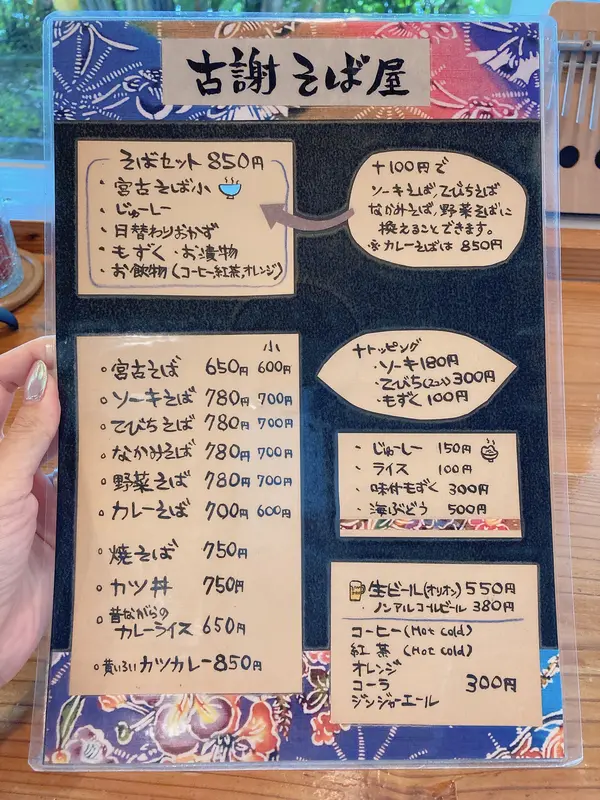 古謝そば屋
そばセット 850円
・宮古そば小
・じゅーしー
・日替わりおかず
・もずく・お漬物
・お飲物(コーヒー,紅茶,オレンジ)
+100円で
ソーキそば,てびちそば
なかみそば,野菜そばに
換えることできます。
※カレーそばは 850円
小
○宮古そば 650円 600円
○ソーキそば 780円 700円
○てびちそば 780円 700円
○なかみそば 780円 700円
○野菜そば 780円 700円
○カレーそば 700円 600円
○焼そば 750円
○カツ丼 750円
○昔ながらの
カレーライス 650円
○黄いろいカツカレー 850円
+トッピング
・ソーキ 180円
・てびち(2コ) 300円
・もずく 100円
・じゅーしー 150円
・ライス 100円
・味付もずく 300円
・海ぶどう 500円
生ビール(オリオン) 550円
ノンアルコールビール 380円
コーヒー(Hot cold)
紅茶(Hot cold)
オレンジ
コーラ 300円
ジンジャーエール